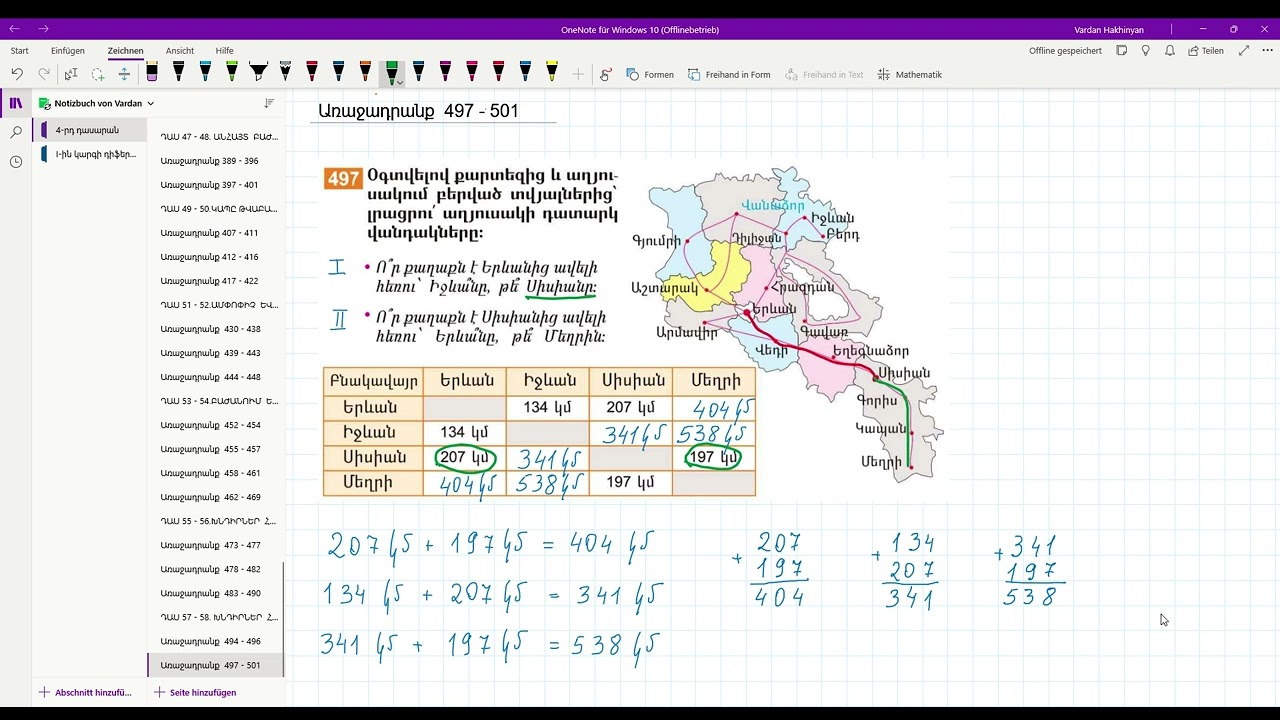 OneNote für Windows 10 (Offlinebetrieb)
Vardan Hakhinyan
Start Einfügen Zeichnen Ansicht Hilfe
Offline gespeichert Teilen
Formen Freihand in Form Freihand in Text Mathematik
Notizbuch von Vardan
4-րդ դասարան
I-ին կարգի դիֆեր...
ԴԱՍ 47 - 48. ԱՆՀԱՅՏ ԲԱԺ...
Առաջադրանք 389 - 396
Առաջադրանք 397 - 401
ԴԱՍ 49 - 50.ԿԱՊԸ ԹՎԱԲԱ...
Առաջադրանք 407 - 411
Առաջադրանք 412 - 416
Առաջադրանք 417 - 422
ԴԱՍ 51 - 52.ԱՄՓՈՓԻՉ ԵՎ...
Առաջադրանք 430 - 438
Առաջադրանք 439 - 443
Առաջադրանք 444 - 448
ԴԱՍ 53 - 54.ԲԱԺԱՆՈՒՄ Ե...
Առաջադրանք 452 - 454
Առաջադրանք 455 - 457
Առաջադրանք 458 - 461
Առաջադրանք 462 - 469
ԴԱՍ 55 - 56.ԽՆԴԻՐՆԵՐ Հ...
Առաջադրանք 473 - 477
Առաջադրանք 478 - 482
Առաջադրանք 483 - 490
ԴԱՍ 57 - 58. ԽՆԴԻՐՆԵՐ Հ...
Առաջադրանք 494 - 496
Առաջադրանք 497 - 501
Abschnitt hinzufü...
Seite hinzufügen
Առաջադրանք 497 - 501
497 Օգտվելով քարտեզից և աղյու-
սակում բերված տվյալներից՝
լրացրու՛ աղյուսակի դատարկ
վանդակները։
I • Ո՞ր քաղաքն է Երևանից ավելի
հեռու՝ Իջևա՞նը, թե՞ Սիսիանը։
II • Ո՞ր քաղաքն է Սիսիանից ավելի
հեռու՝ Երևա՞նը, թե՞ Մեղրին։
Վանաձոր
Իջևան
Բերդ
Դիլիջան
Գյումրի
Աշտարակ
Հրազդան
Երևան
Արմավիր
Գավառ
Վեդի
Եղեգնաձոր
Սիսիան
Գորիս
Կապան
Մեղրի
Բնակավայր Երևան Իջևան Սիսիան Մեղրի
Երևան 134 կմ 207 կմ 404 կմ
Իջևան 134 կմ 341 կմ 538 կմ
Սիսիան 207 կմ 341 կմ 197 կմ
Մեղրի 404 կմ 538 կմ 197 կմ
207 կմ + 197 կմ = 404 կմ
134 կմ + 207 կմ = 341 կմ
341 կմ + 197 կմ = 538 կմ
+ 207
197
404
+ 134
207
341
+ 341
197
538